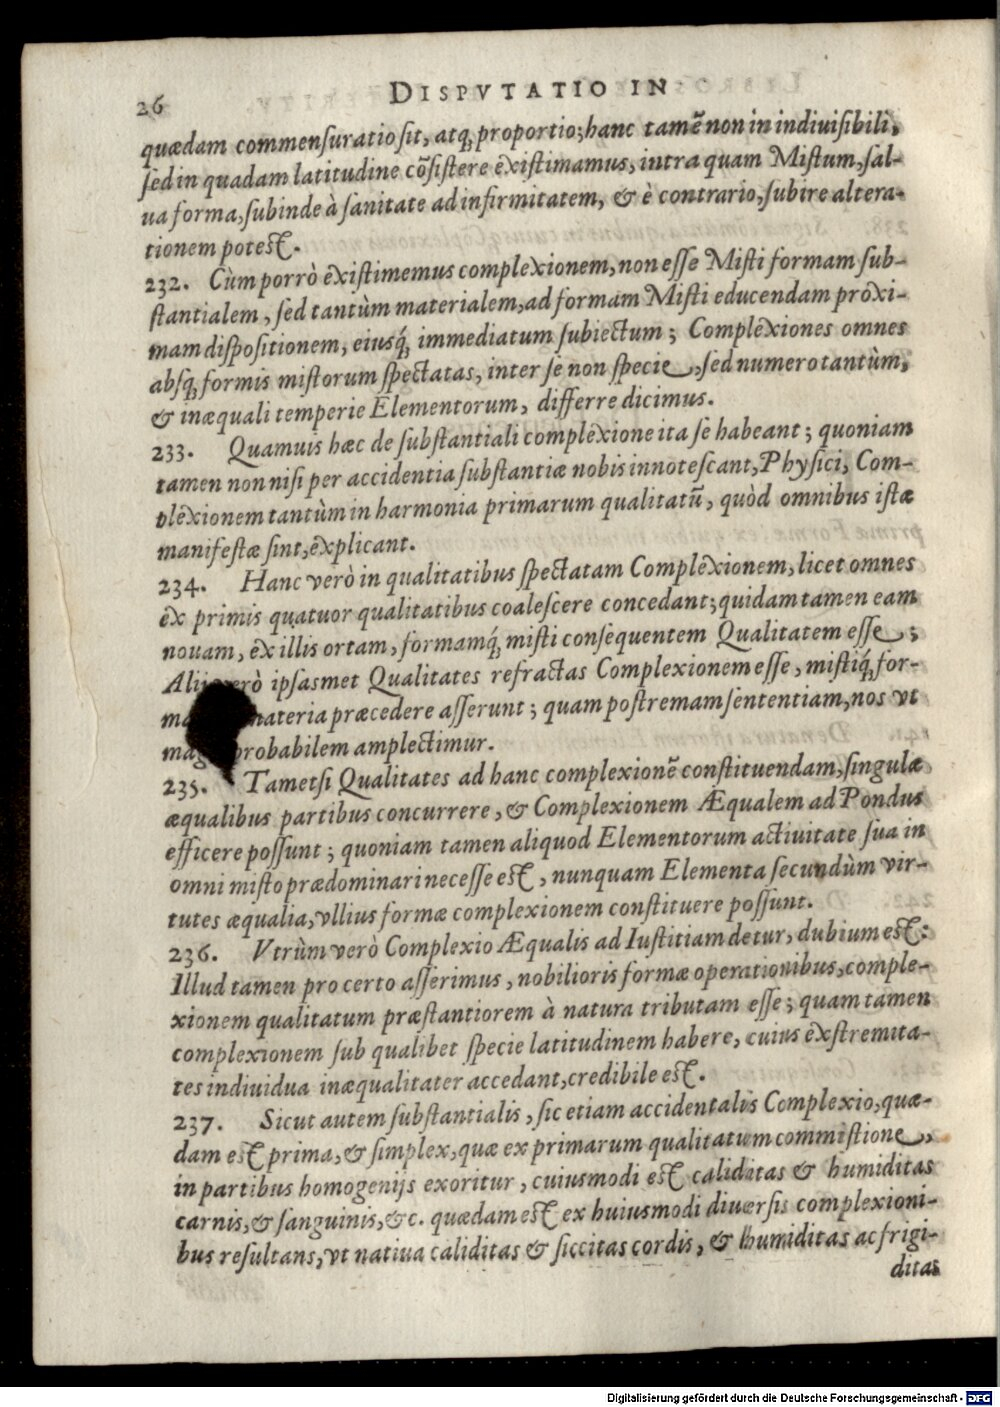 26
DISPVTATIO IN
quædam commensuratio sit, atq; proportio; hanc tamē non in indiuisibili,
sed in quadam latitudine cōsistere existimamus, intra quam Mistum, sal-
ua forma, subinde à sanitate ad infirmitatem, & è contrario, subire altera-
tionem potest.
232. Cùm porrò existimemus complexionem, non esse Misti formam sub-
stantialem, sed tantùm materialem, ad formam Misti educendam proxi-
mam dispositionem, eiusq́; immediatum subiectum; Complexiones omnes
absq; formis mistorum spectatas, inter se non specie, sed numero tantùm,
& inæquali temperie Elementorum, differre dicimus.
233. Quamuis hæc de substantiali complexione ita se habeant; quoniam
tamen non nisi per accidentia substantiæ nobis innotescant, Physici, Com-
plexionem tantùm in harmonia primarum qualitatū, quòd omnibus istæ
manifestæ sint, explicant.
234. Hanc verò in qualitatibus spectatam Complexionem, licet omnes
ex primis quatuor qualitatibus coalescere concedant; quidam tamen eam
nouam, ex illis ortam, formamq́; misti consequentem Qualitatem esse;
Alij verò ipsasmet Qualitates refractas Complexionem esse, mistiq́; for-
materia præcedere asserunt; quam postremam sententiam, nos vt
probabilem amplectimur.
235. Tametsi Qualitates ad hanc complexionē constituendam, singulæ
æqualibus partibus concurrere, & Complexionem Æqualem ad Pondus
efficere possunt; quoniam tamen aliquod Elementorum actiuitate sua in
omni misto prædominari necesse est, nunquam Elementa secundùm vir-
tutes æqualia, vllius formæ complexionem constituere possunt.
236. Vtrùm verò Complexio Æqualis ad Iustitiam detur, dubium est:
Illud tamen pro certo asserimus, nobilioris formæ operationibus, comple-
xionem qualitatum præstantiorem à natura tributam esse; quam tamen
complexionem sub qualibet specie latitudinem habere, cuius exstremita-
tes indiuidua inæqualitater accedant, credibile est.
237. Sicut autem substantialis, sic etiam accidentalis Complexio, quæ-
dam est prima, & simplex, quæ ex primarum qualitatum commistione,
in partibus homogenijs exoritur, cuiusmodi est caliditas & humiditas
carnis, & sanguinis, &c. quædam est ex huiusmodi diuersis complexioni-
bus resultans, vt natiua caliditas & siccitas cordis, & humiditas ac frigi-
ditas
Digitalisierung gefördert durch die Deutsche Forschungsgemeinschaft - DFG